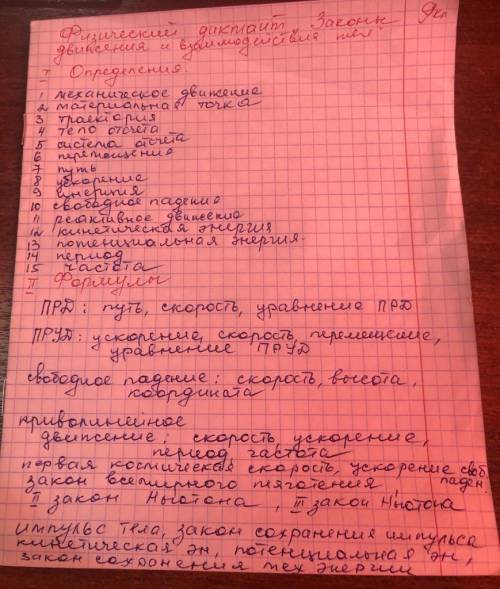 Физический диктант. Законы 9кл
движения и взаимодействия тел.
I Определения.
1 механическое движение
2 материальная точка
3 траектория
4 тело отсчета
5 система отсчета
6 перемещение
7 путь
8 ускорение
9 инерция
10 свободное падение
11 реактивное движение
12 кинетическая энергия
13 потенциальная энергия.
14 период
15 частота
II Формулы
ПРД: путь, скорость, уравнение ПРД
ПРУД: ускорение, скорость, перемещение,
уравнение ПРУД
свободное падение: скорость, высота,
координата
криволинейное
движение: скорость, ускорение,
период, частота
первая космическая скорость, ускорение своб.
закон всемирного тяготения, паден.
II закон Ньютона, III закон Ньютона
импульс тела, закон сохранения импульса
кинетическая эн, потенциальная эн,
закон сохранения мех энергии